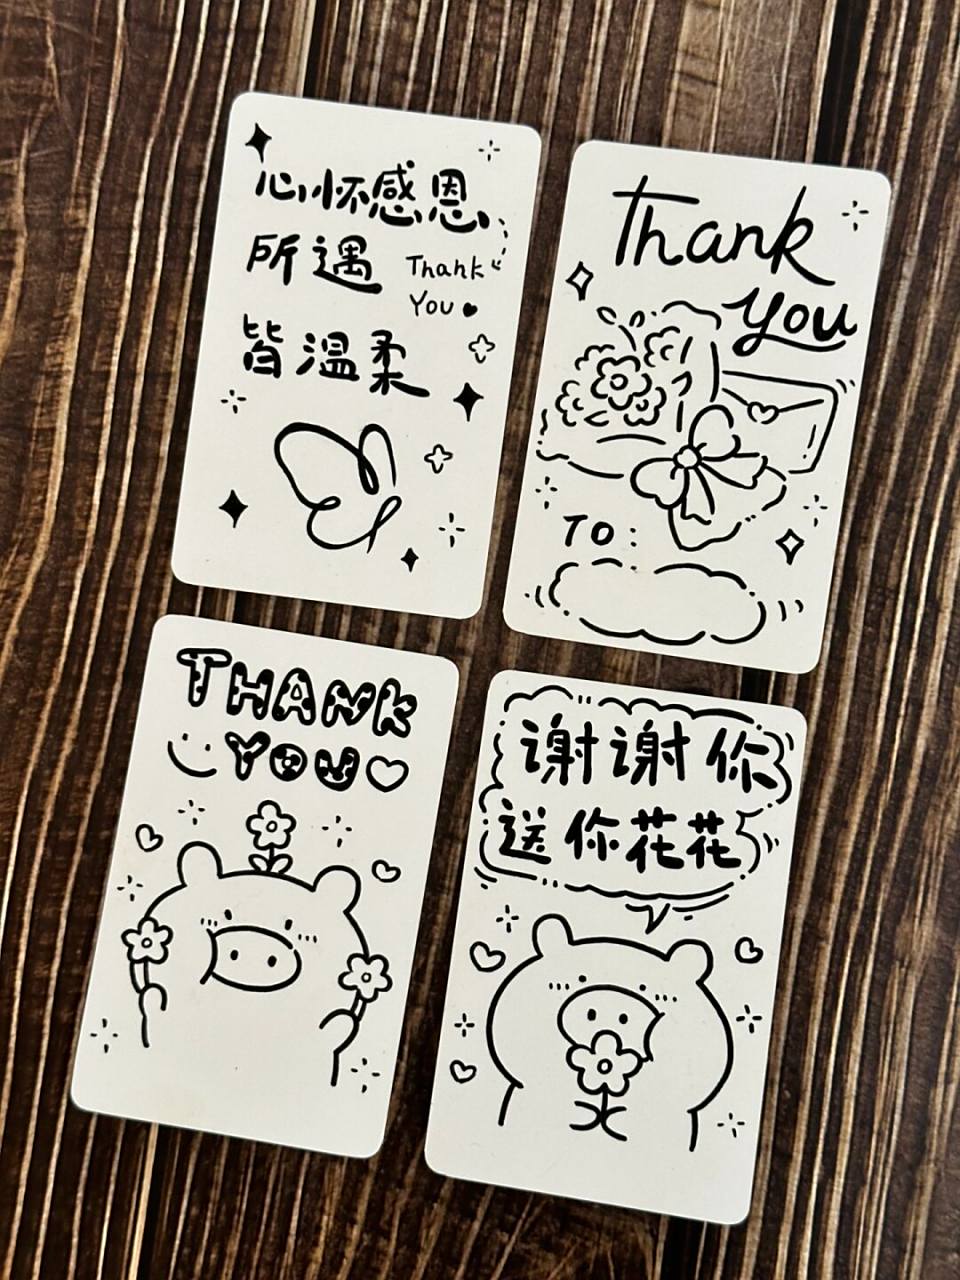 心怀感恩
所遇
Thank
You
皆温柔
Thank
you
TO:
THANK
YOU
谢谢你
送你花花